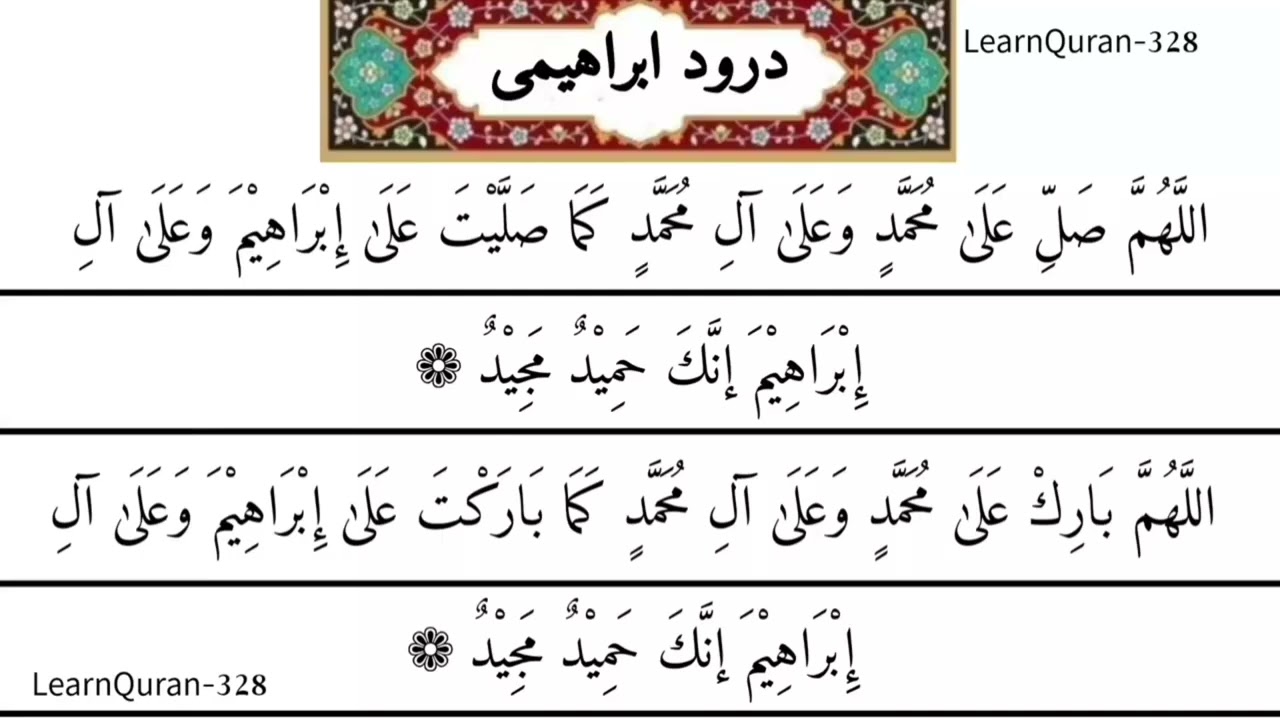 درود ابراهیمی
LearnQuran-328
اللَّهُمَّ صَلِّ عَلَىٰ مُحَمَّدٍ وَعَلَىٰ آلِ مُحَمَّدٍ كَمَا صَلَّيْتَ عَلَىٰ إِبْرَاهِيْمَ وَعَلَىٰ آلِ
إِبْرَاهِيْمَ إِنَّكَ حَمِيْدٌ مَجِيْدٌ ❁
اللَّهُمَّ بَارِكْ عَلَىٰ مُحَمَّدٍ وَعَلَىٰ آلِ مُحَمَّدٍ كَمَا بَارَكْتَ عَلَىٰ إِبْرَاهِيْمَ وَعَلَىٰ آلِ
إِبْرَاهِيْمَ إِنَّكَ حَمِيْدٌ مَجِيْدٌ ❁
LearnQuran-328